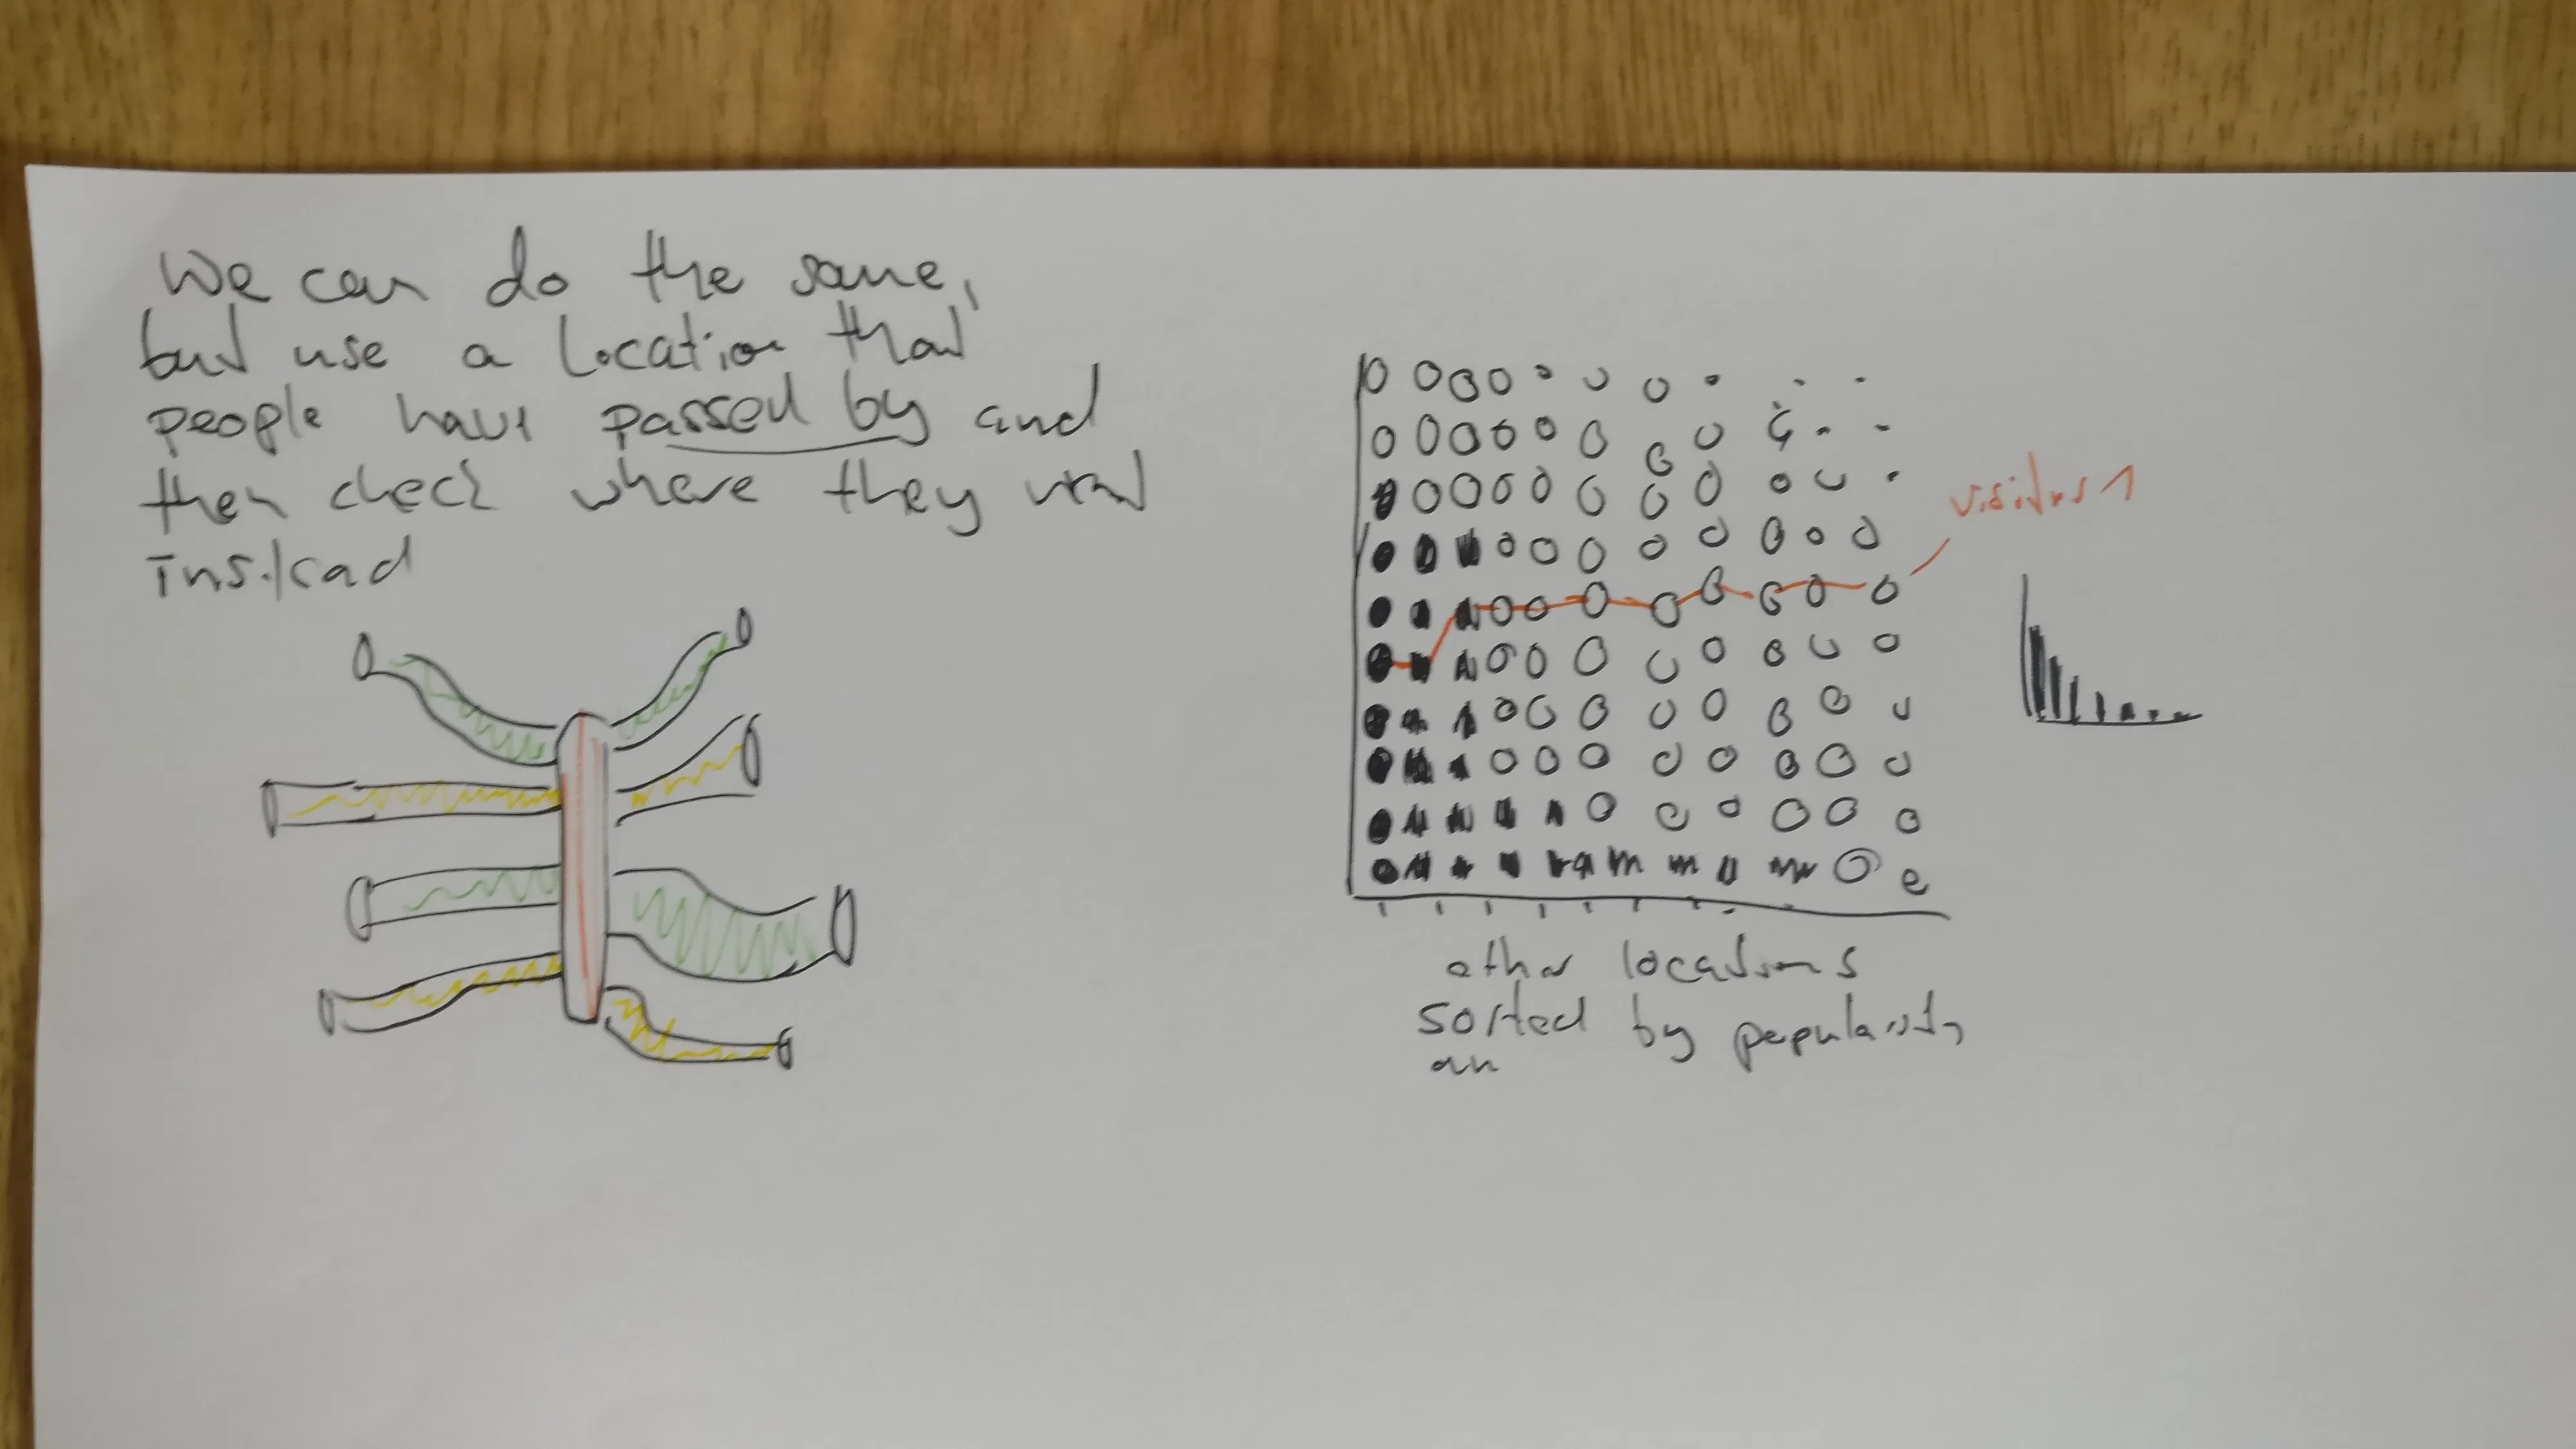 We can do the same,
but use a location that
people have passed by and
then check where they went
instead
visitors 1
other locations
sorted by popularity
an